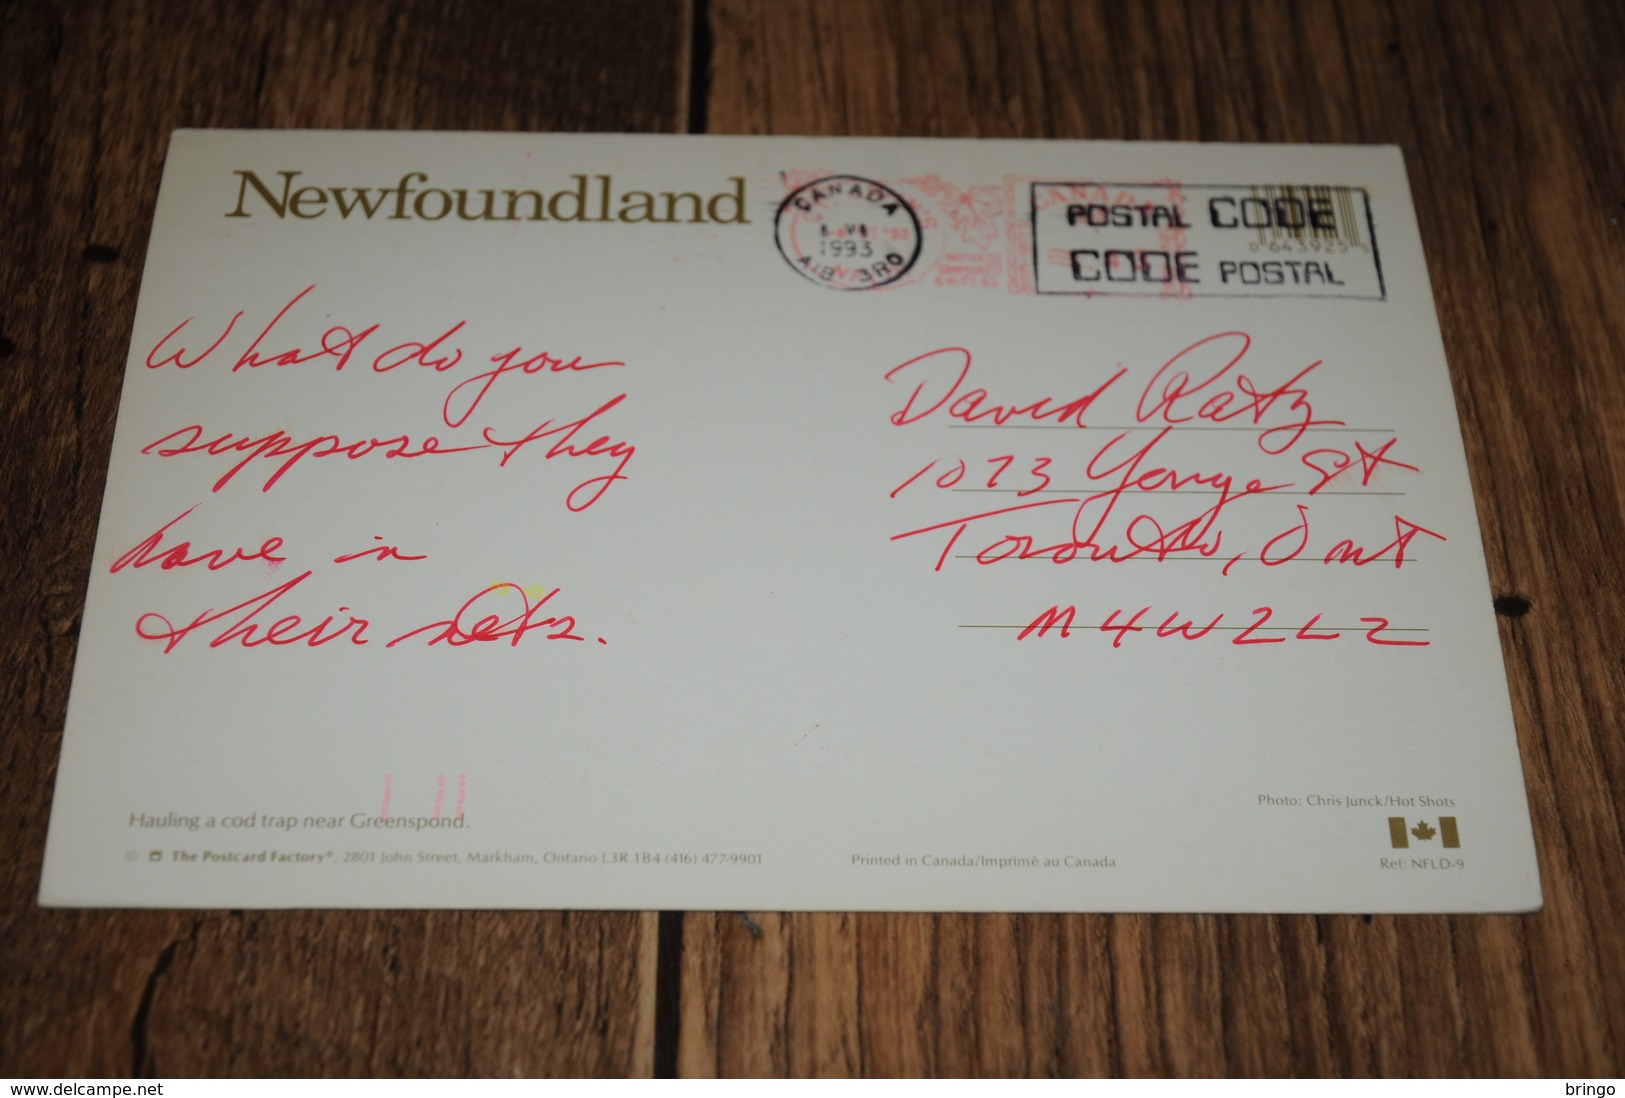 Newfoundland
CANADA
VI
1993
A1B 3R0
CANADA
POSTAL CODE
CODE POSTAL
0 643925 5
What do you
suppose they
have in
their nets.
David Ratz
1073 Yonge St
Toronto, Ont
M4W2L2
Hauling a cod trap near Greenspond.
© The Postcard Factory®, 2801 John Street, Markham, Ontario L3R 1B4 (416) 477-9901
Printed in Canada/Imprimé au Canada
Photo: Chris Junck/Hot Shots
Ref: NFLD-9
www.delcampe.net
bringo